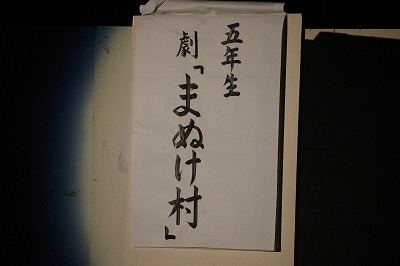 五年生
劇「まぬけ村」